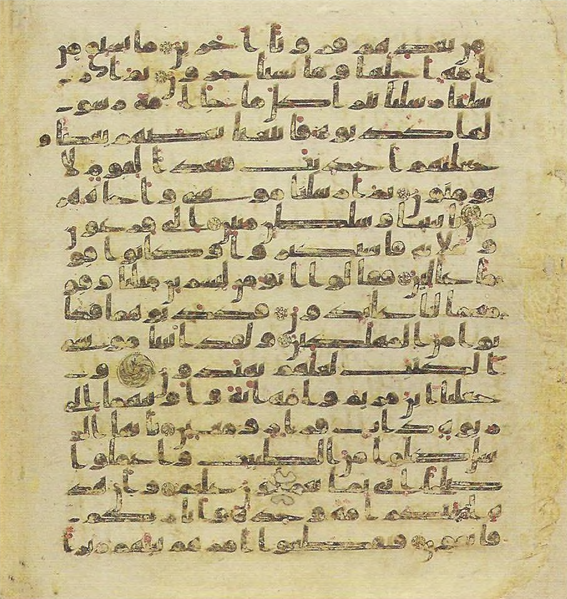 من بعدهم قرونا اخرين ما تسبق من
امه اجلها وما يستخرون ثم ار
سلنا رسلنا تترا كل ما جا امه رسو
لها كذبوه فاتبعنا بعضهم بعضا و
جعلنهم احديث فبعدا لقوم لا
يومنون ثم ارسلنا موسى واخاه
هرون بايتنا وسلطن مبين الى فرعون
وملايه فاستكبروا وكانوا قو
ما عالين فقالوا انومن لبشرين مثلنا وقو
مهما لنا عبدون فكذبوهما فكا
نوا من المهلكين ولقد اتينا موسى
الكتب لعلهم يهتدون و
جعلنا ابن مريم وامه ايه واوينهما الى
ربوه ذات قرار ومعين يايها ال
رسل كلوا من الطيبت واعملوا
صلحا اني بما تعملون عليم وان هذ
ه امتكم امه وحده وانا ربكم
فاتقون فتقطعوا امرهم بينهم زبرا